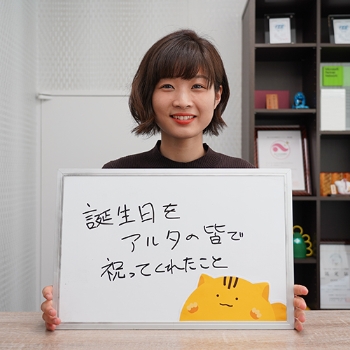 誕生日を
アルタの皆で
祝ってくれたこと